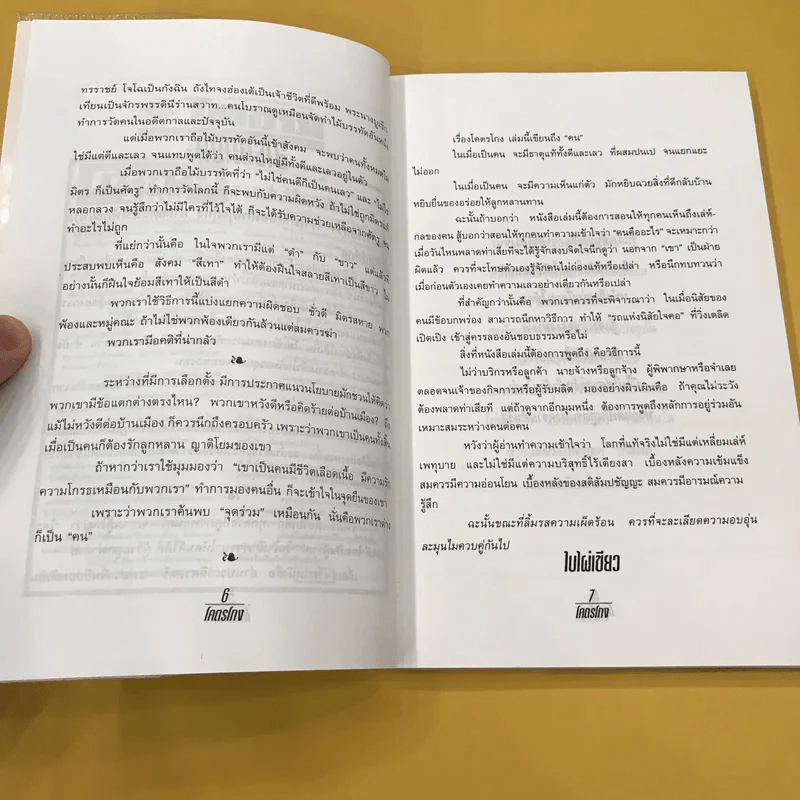 ทรราชย์ โจโฉเป็นกังฉิน ถังไทจงฮ่องเต้เป็นเจ้าชีวิตที่ดีพร้อม พระนางบูเช็ก
เทียนเป็นจักรพรรดินีร่านสวาท...คนโบราณดูเหมือนจัดทำไม้บรรทัดอันหนึ่ง
ทำการวัดคนในอดีตกาลและปัจจุบัน
แต่เมื่อพวกเราถือไม้บรรทัดอันนี้เข้าสังคม จะพบว่าคนทั้งหมดไม่
ใช่มีแต่ดีและเลว จนแทบพูดได้ว่า คนส่วนใหญ่มีทั้งดีและเลวอยู่ในตัว
เมื่อพวกเราถือไม้บรรทัดที่ว่า “ไม่ใช่คนดีก็เป็นคนเลว” และ “ไม่ใช่
มิตร ก็เป็นศัตรู” ทำการวัดโลกนี้ ก็จะพบกับความผิดหวัง ถ้าไม่ใช่ถูกมิตรแท้
หลอกลวง จนรู้สึกว่าไม่มีใครที่ไว้ใจได้ ก็จะได้รับความช่วยเหลือจากศัตรู จน
ทำอะไรไม่ถูก
ที่แย่กว่านั้นคือ ในใจพวกเรามีแต่ “ดำ” กับ “ขาว” แต่แล้วที่
ประสบพบเห็นคือ สังคม “สีเทา” ทำให้ต้องฝืนใจสลายสีเทาเป็นสีขาว ไม่
อย่างนั้นก็ฝืนใจย้อมสีเทาให้เป็นสีดำ
พวกเราใช้วิธีการนี้แบ่งแยกความผิดชอบ ชั่วดี มิตรสหาย พวก
พ้องและหมู่คณะ ถ้าไม่ใช่พวกพ้องเดียวกันล้วนแต่สมควรฆ่า
พวกเรามีอคติที่น่ากลัว
ระหว่างที่มีการเลือกตั้ง มีการประกาศแนวนโยบายมักชวนให้คิดว่า
พวกเขามีข้อแตกต่างตรงไหน? พวกเขาหวังดีหรือคิดร้ายต่อบ้านเมือง? ถึง
แม้ไม่หวังดีต่อบ้านเมือง ก็ควรนึกถึงครอบครัว เพราะว่าพวกเขาเป็นคนทั้งสิ้น
เมื่อเป็นคนก็ต้องรักลูกหลาน ญาติโยมของเขา
ถ้าหากว่าเราใช้มุมมองว่า “เขาเป็นคนมีชีวิตเลือดเนื้อ มีความรัก
ความโกรธเหมือนกับพวกเรา” ทำการมองคนอื่น ก็จะเข้าใจในจุดยืนของเขา
เพราะว่าพวกเราค้นพบ “จุดร่วม” เหมือนกัน นั่นคือพวกเราต่าง
ก็เป็น “คน”
6
โคตรโกง
เรื่องโคตรโกง เล่มนี้เขียนถึง “คน”
ในเมื่อเป็นคน จะมีธาตุแท้ทั้งดีและเลว ที่ผสมปนเป จนแยกแยะ
ไม่ออก
ในเมื่อเป็นคน จะมีความเห็นแก่ตัว มักหยิบฉวยสิ่งที่ดีกลับบ้าน
หยิบยื่นของอร่อยให้ลูกหลานทาน
ฉะนั้นถ้าบอกว่า หนังสือเล่มนี้ต้องการสอนให้ทุกคนเห็นถึงเล่ห์-
กลของคน สู้บอกว่าสอนให้ทุกคนทำความเข้าใจว่า “คนคืออะไร” จะเหมาะกว่า
เมื่อวันไหนพลาดท่าเสียทีจะได้รู้จักสงบจิตใจนึกดูว่า นอกจาก “เขา” เป็นฝ่าย
ผิดแล้ว ควรที่จะโทษตัวเองรู้จักคนไม่ถ่องแท้หรือเปล่า หรือนึกทบทวนว่า
เมื่อก่อนตัวเองเคยทำความเลวอย่างเดียวกันหรือเปล่า
ที่สำคัญกว่านั้นคือ พวกเราควรที่จะพิจารณาว่า ในเมื่อนิสัยของ
คนมีข้อบกพร่อง สามารถนึกหาวิธีการ ทำให้ “รถแห่งนิสัยใจคอ” ที่วิ่งเตลิด
เปิดเปิง เข้าสู่ครรลองอันชอบธรรมหรือไม่
สิ่งที่หนังสือเล่มนี้ต้องการพูดถึง คือวิธีการนี้
ไม่ว่าบริกรหรือลูกค้า นายจ้างหรือลูกจ้าง ผู้พิพากษาหรือจำเลย
ตลอดจนเจ้าของกิจการหรือผู้รับผลิต มองอย่างผิวเผินคือ ถ้าคุณไม่ระวัง
ต้องพลาดท่าเสียที แต่ถ้าดูจากอีกมุมหนึ่ง ต้องการพูดถึงหลักการอยู่ร่วมอัน
เหมาะสมระหว่างคนต่อคน
หวังว่าผู้อ่านทำความเข้าใจว่า โลกที่แท้จริงไม่ใช่มีแต่เหลี่ยมเล่ห์
เพทุบาย และไม่ใช่มีแต่ความบริสุทธิ์ไร้เดียงสา เบื้องหลังความเข้มแข็ง
สมควรมีความอ่อนโยน เบื้องหลังของสติสัมปชัญญะ สมควรมีอารมณ์ความ
รู้สึก
ฉะนั้นขณะที่ลิ้มรสความเผ็ดร้อน ควรที่จะละเลียดความอบอุ่น
ละมุนไมควบคู่กันไป
ใบไผ่เขียว
7
โคตรโกง